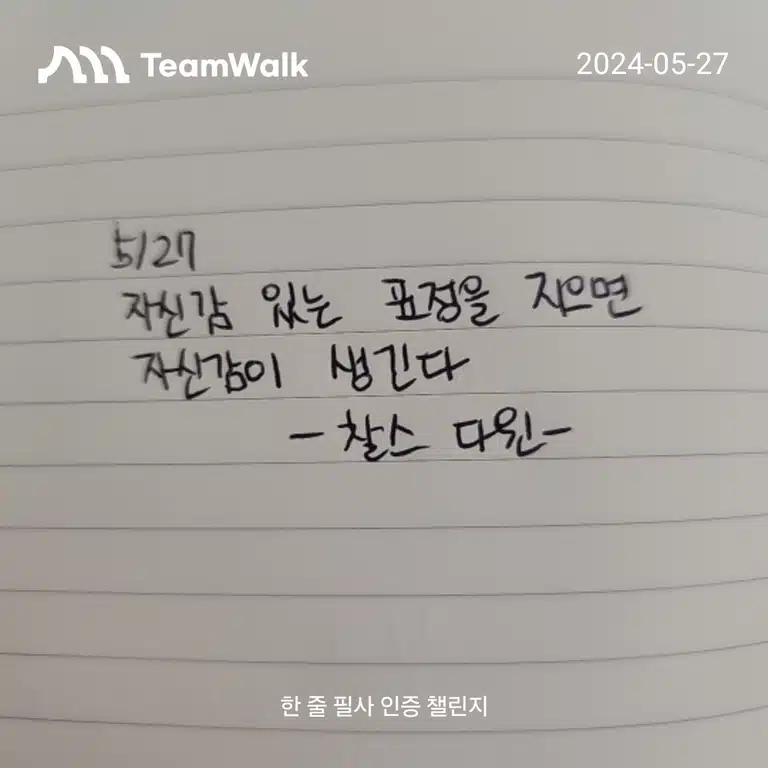 TeamWalk
2024-05-27
5/27
자신감 있는 표정을 지으면
자신감이 생긴다
- 찰스 다윈 -
한 줄 필사 인증 챌린지